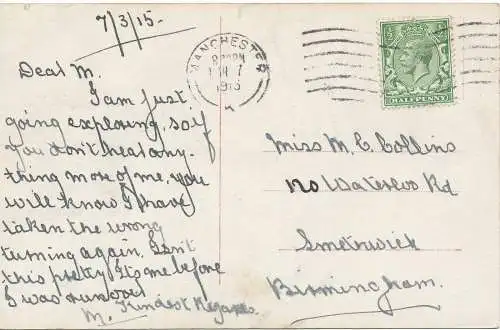 7/3/15.
Dear M.
I am just
going exploring, so if
you don't hear any-
thing more of me, you
will know I have
taken the wrong
turning again. Isn't
this pretty. Its me before
I was
M. Kindest Regards.
MANCHESTER
1915
HALFPENNY
Miss M. C. Collins
120 Waterloo Rd
Smethwick
Birmingham.